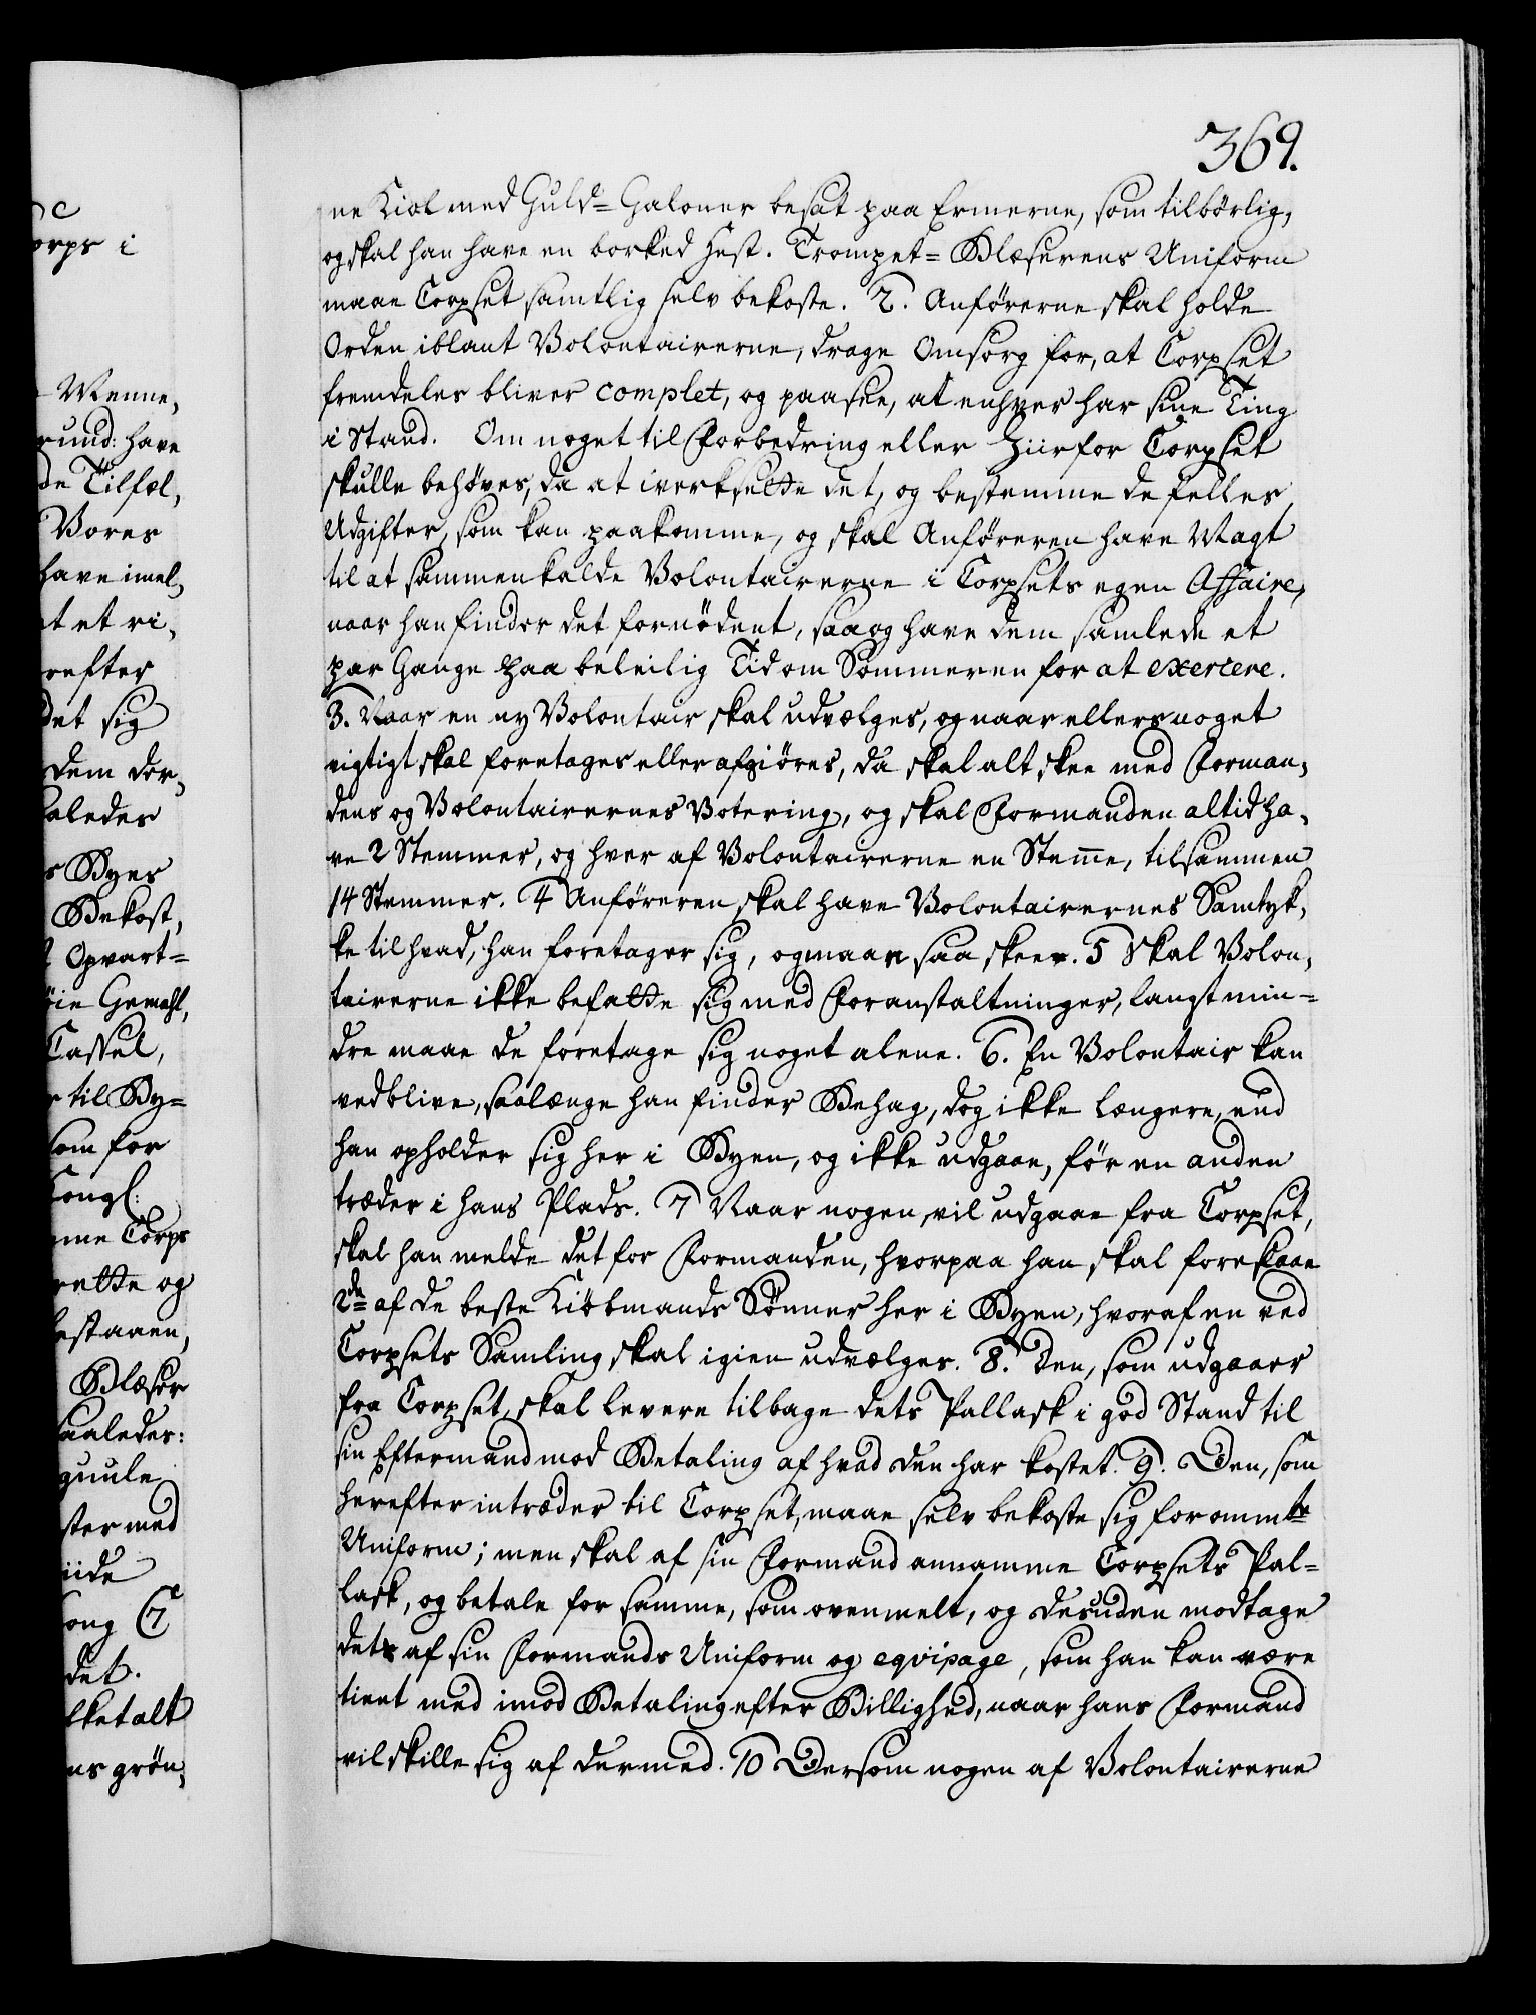 369.
ne Kiol med Guld= Galoner besat paa Ermerne, som tilbørlig,
og skal han have en borked Hest. Trompet= Blæserens Uniform
maae Corpset samtlig selv bekoste. 2. Anførerne skal holde
Orden iblant Volontairerne, drage Omsorg for, at Corpset
fremdeles bliver complet, og paasee, at enhver har sine Ting
i Stand. Om noget til Forbedring eller Ziir for Corpset
skulle behøves, da at iverksette det, og bestemme de felles
Udgifter, som kan paakomme, og skal Anføreren have Magt
til at sammenkalde Volontairerne i Corpsets egen Affaire,
naar han finder det fornødent, saa og have dem samlede et
par Gange paa beleilig Tid om Sommeren for at exercere.
3. Naar en ny Volontair skal udvælges, og naar ellers noget
vigtigt skal foretages eller afgiøres, da skal alt skee med Forman,
dens og Volontairernes Votering, og skal Formanden altid ha,
ve 2 Stemmer, og hver af Volontairerne en Stem̅e, tilsammen
14 Stemmer. 4 Anføreren skal have Volontairernes Samtyk,
ke til hvad, han foretager sig, og maae saa skee. 5 Skal Volon,
tairerne ikke befatte sig med Foranstaltninger, langt min=
dre maae de foretage sig noget alene. 6. En Volontair kan
vedblive, saalænge han finder Behag, dog ikke længere, end
han opholder sig her i Byen, og ikke udgaae, før en anden
træder i hans Plads. 7 Naar nogen vil udgaae fra Corpset,
skal han melde det for Formanden, hvorpaa han skal foreslaae
2de af de beste Kiøbmands Sønner her i Byen, hvoraf en ved
Corpsets Samling skal igien udvælges. 8. Den, som udgaaer
fra Corpset, skal levere tilbage dets Pallask i god Stand til
sin Eftermand mod Betaling af hvad den har kostet. 9. Den, som
herefter intræder til Corpset, maae selv bekoste sig forommte
Uniform; men skal af sin Formand annamme Corpsets Pal=
lask, og betale for samme, som ovenmelt, og desuden modtage
det af sin Formands Uniform og eqvipage, som han kan være
tient med imod Betaling efter Billighed, naar hans Formand
vil skille sig af dermed. 10 Dersom nogen af Volontairerne
orps i
Menne,
grund: have
de Tilfæl,
Vores
have imel,
t et ri,
refter
det sig
dem der,
aaledes
s Byes
Bekost,
Opvart=
øie Gemahl,
Cassel,
til By=
som for
Kongl:
me Corps
rette og
bestaaen,
Blæser
saaledes:
guule
ster med
iide
ong 7
det.
lketalt
ns grøn,